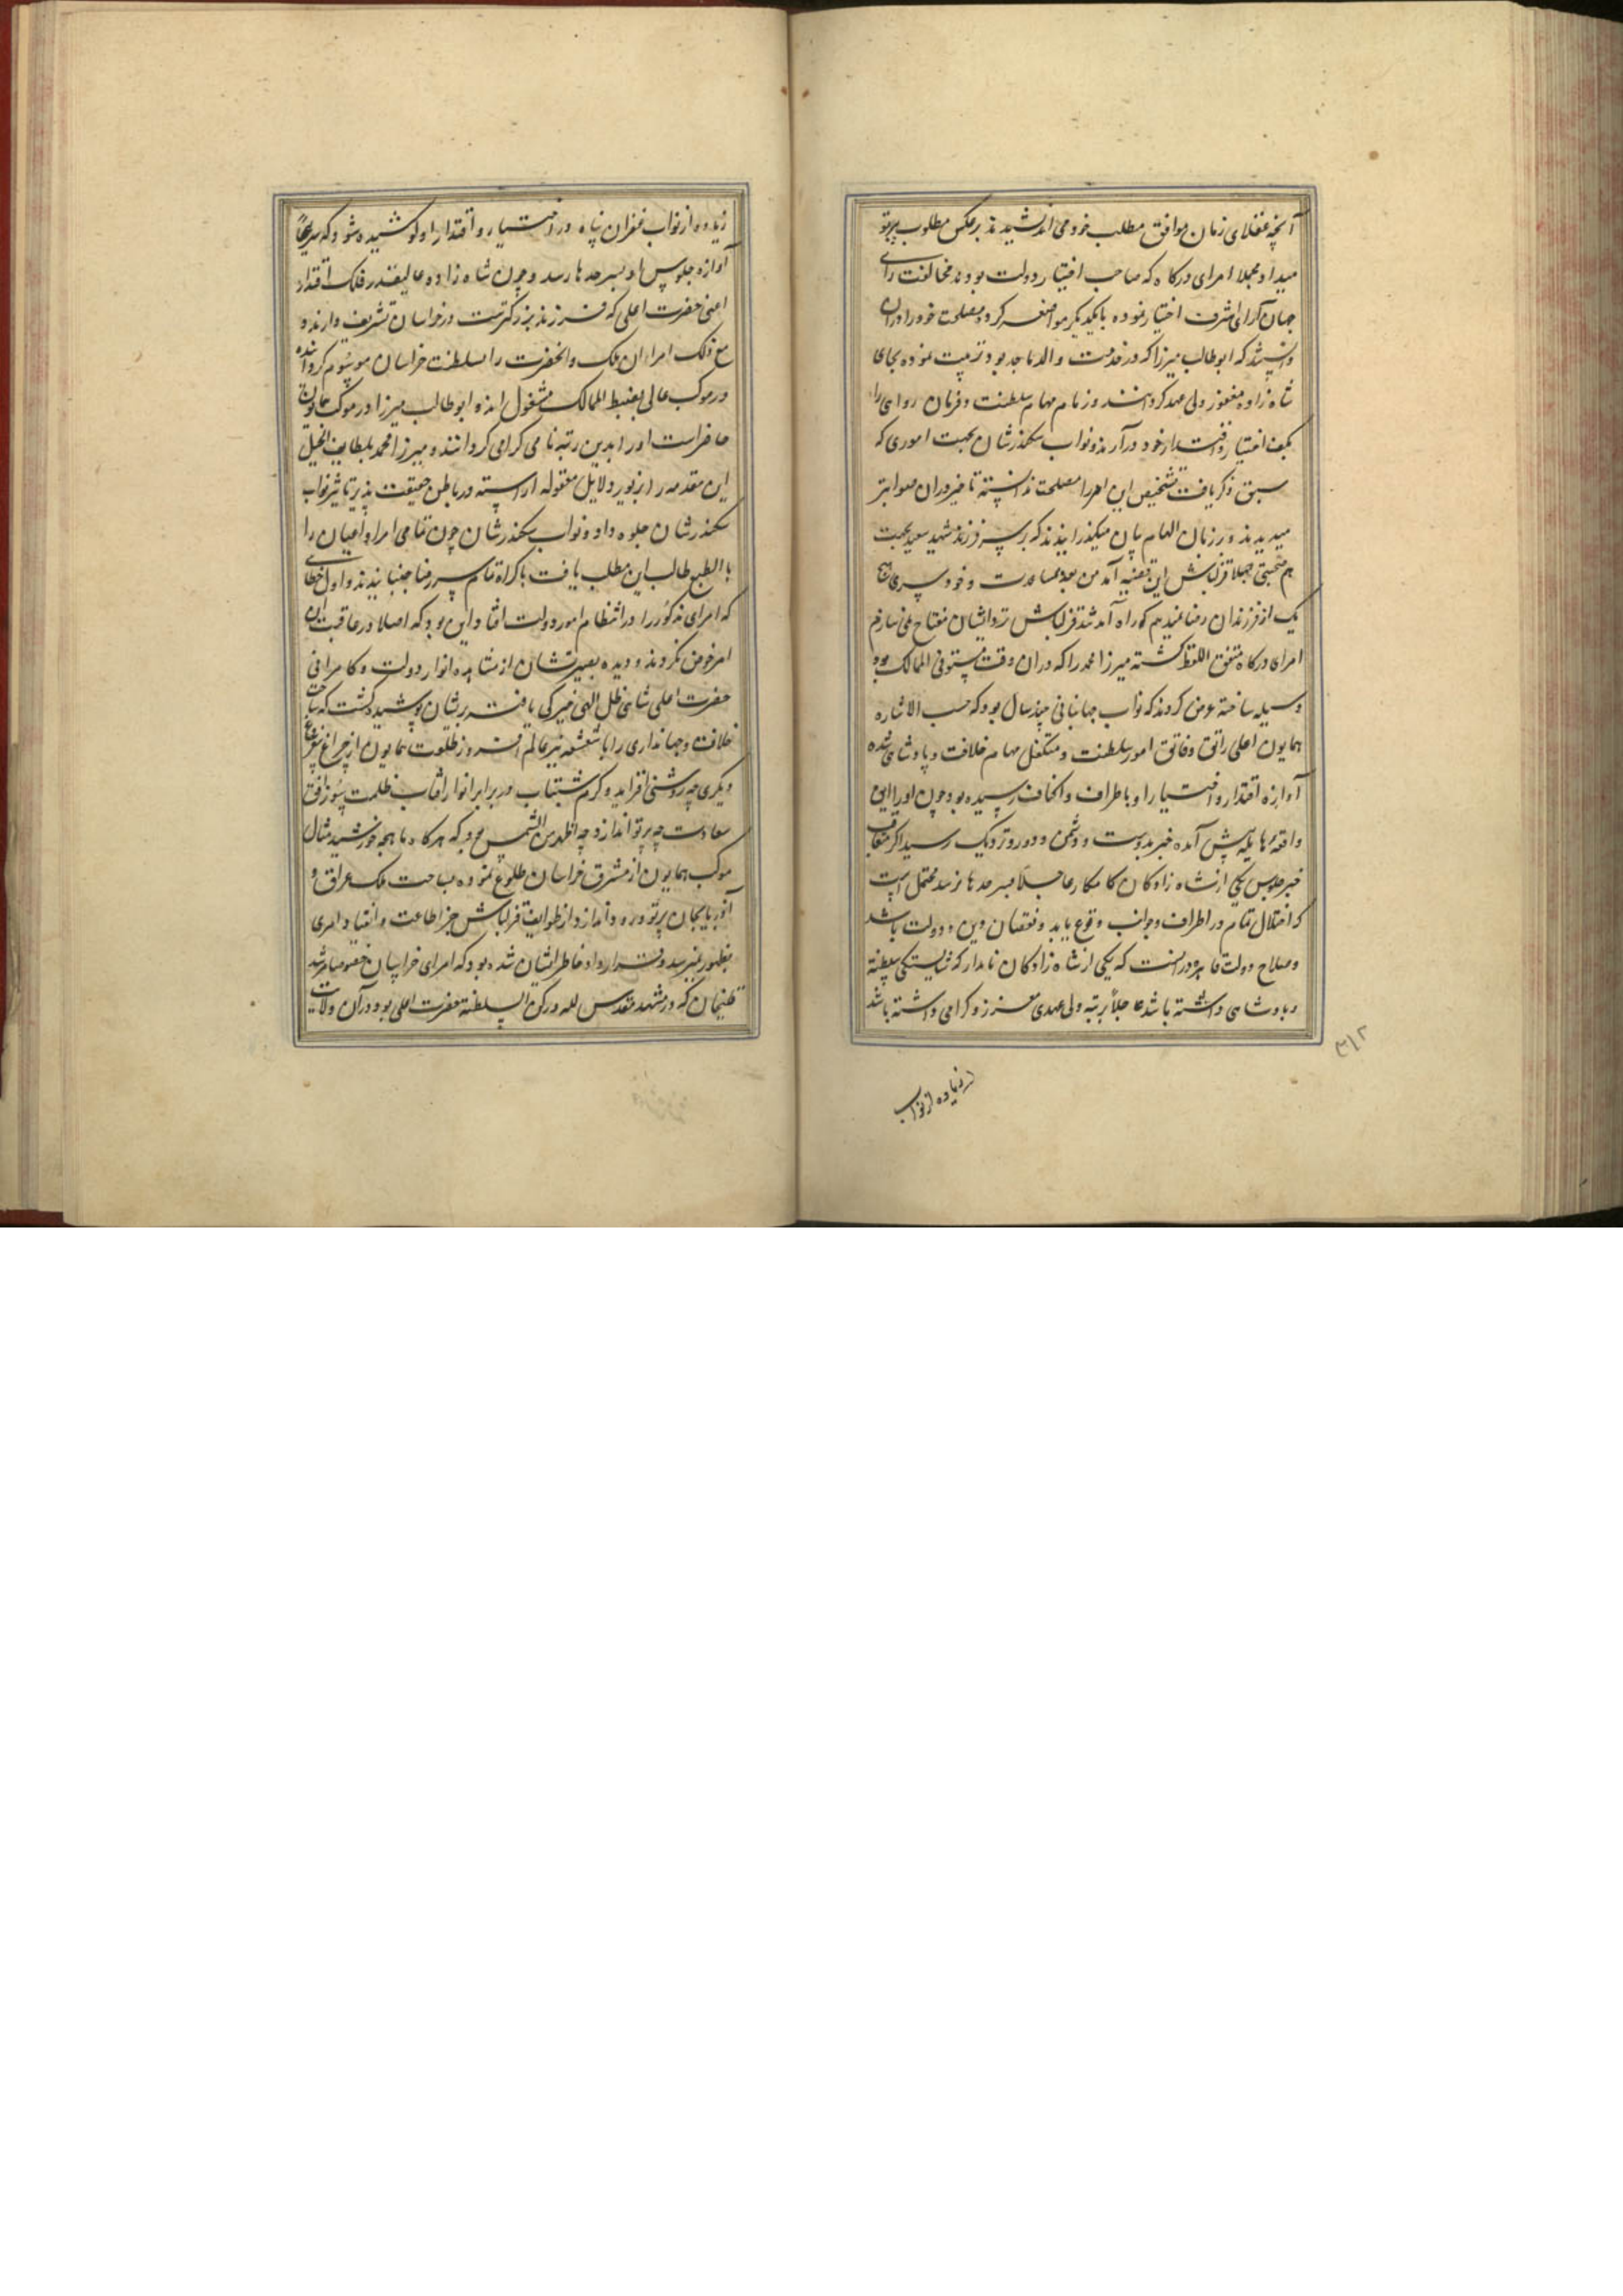 آنچه عقلای زمان موافق مطلب خود می اندیشیدند بر عکس مطلوب پرتو
میداد مجملا امرای درکاه که صاحب اختیار دولت بودند مخالفت رای
جهان آرای اشرف اختیار نموده با یکدیکر مواضعه کردند مصلحت خود را در ان
دانستند که ابوطالب میرزا که در خدمت والد ماجد بود تربیت نموده بجای
شاه زاده مغفور ولی عهد کردانند و زمام مهام سلطنت و فرمان روایی را
بکف اختیار و اقتدار خود درآرند و نواب سکندرشان بجهت اموری که
سبق ذکر یافت تشخیص این امر را مصلحت ندانسته تا خیر در ان صوابتر
میدیدند و بر زبان الهام بیان میکذرانیدند که بر سر فرزند شهید سعید بجهت
هم صحبتی جهلا قزلباش این قضیه آمد من بعد مصاحبت و خودسری هیچ
یک از فرزندان رضا نمیدهم که راه آمد شد قزلباش نزد ایشان مفتاح نمی سازم
امرای درکاه متفق اللفظ کشته میرزا محمد را که در ان وقت مستوفی الممالک بود
وسیله ساخته عرض کردند که نواب جهانبانی چند سال بود که حسب الاشاره
همایون اعلی راتق و فاتق امور سلطنت و متکفل مهام خلافت و پادشاهی شده
آوازه اقتدار و اختیار او باطراف و اکناف رسیده بود چون او را این
واقعه هایله پیش آمده خبر بدوست و دشمن و دور و نزدیک رسید اکر متعاقب
خبر جلوس یکی از شاه زادکان کامکار عاجلاً بسرحدها نرسد محتمل است
که اختلال تمام در اطراف و جوانب وقوع یابد و نقصان دین و دولت باشد
و صلاح دولت قاهره در انست که یکی از شاه زادکان نامدار که شایستکی سلطنة
و پادشاهی داشته باشد عاجلاً برتبه ولی عهدی معزز و کرامی داشته باشد
۳۱۲
زیاده از نواب
زیاده از نواب غفران پناه در اختیار و اقتدار او کوشیده شود که سریعاً
آوازه جلوس او بسرحدها رسد و چون شاه زاده عالیقدر فلک اقتدار
اعنی حضرت اعلی که فرزند بزرکترست در خراسان تشریف دارند و
مع ذلک امراء ان ملک والحضرت را بسلطنت خراسان موسوم کردانیده
در موکب عالی بضبط الممالک مشغول اند و ابوطالب میرزا در موکب همایون
حاضراست او را بدین رتبه نامی کرامی کردانند و میرزا محمد بلطایف الحیل
این مقدمه را بزیور دلایل معقوله اراسته در باطن حقیقت پذیر تاثیر نواب
سکندرشان جلوه داد و نواب سکندرشان چون تمامی امرا و اعیان را
بالطبع طالب این مطلب یافت باکراه تمام سر رضا جنبانیدند و اول خطای
که امرای مذکور را در انتظام امور دولت افتاد این بود که اصلا در عاقبت این
امر خوض نکردند و دیده بصیرتشان از مشاهده انوار دولت و کامرانی
حضرت اعلی شاهی ظل الهی خیرکی یافته بریشان پوشیده کشت که ساحت
خلافت و جهانداری را با شعشعه نیر عالم افروز طلعت همایون از چراغ بی شعاع
دیکری چه روشنی افزاید و کرم شبتاب در برابر انوار افتاب ظلمت سوز افق
سعادت چه پرتو اندازد چه اظهر من الشمس بود که هرکاه ماهچه خورشید مثال
موکب همایون از مشرق خراسان طلوع نموده بساحت ملک عراق و
آذربایجان پرتو ورود اندازد از طوایف قزلباش جز اطاعت و انقیاد امری
بظهور نمیرسد و قرار داد خاطر ایشان شده بود که امرای خراسان خصوصا مرشد
قلیخان که در مشهد مقدس لله و رکن السلطنة حضرت اعلی بود در آن ولایت